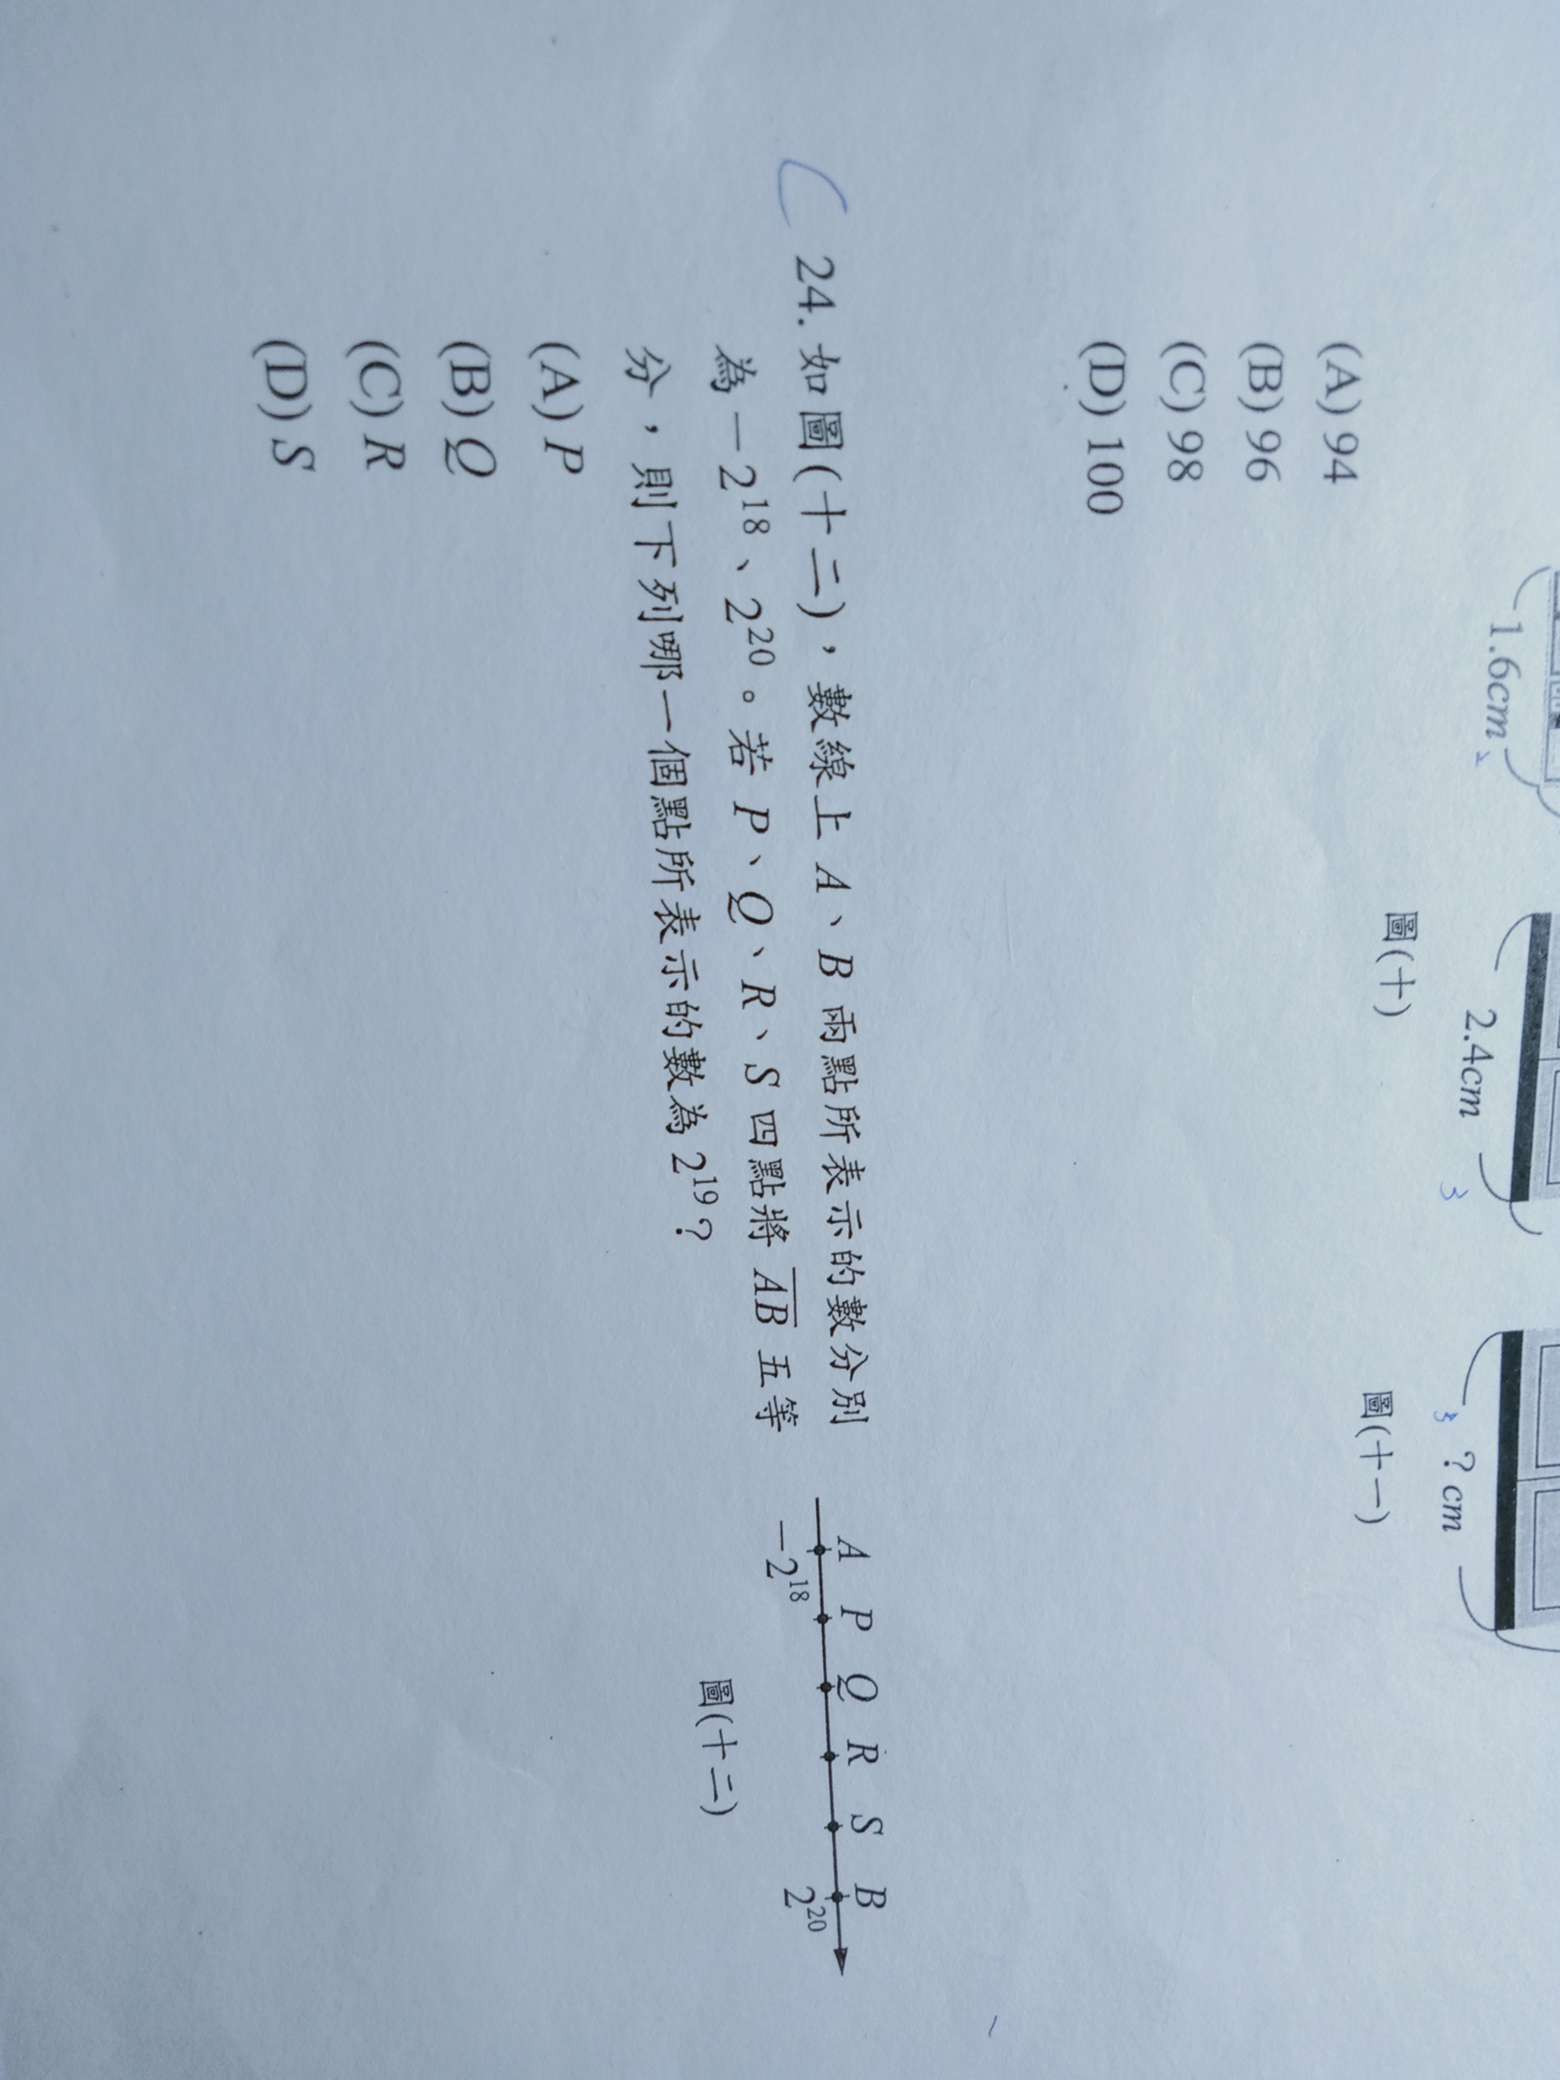 1.6cm
2.4cm
? cm
3
3
圖(十)
圖(十一)
(A) 94
(B) 96
(C) 98
(D) 100
24. 如圖(十二)，數線上 A、B 兩點所表示的數分別
為 －2¹⁸、2²⁰。若 P、Q、R、S 四點將 AB 五等
分，則下列哪一個點所表示的數為 2¹⁹？
A P Q R S B
－2¹⁸ 2²⁰
圖(十二)
(A) P
(B) Q
(C) R
(D) S